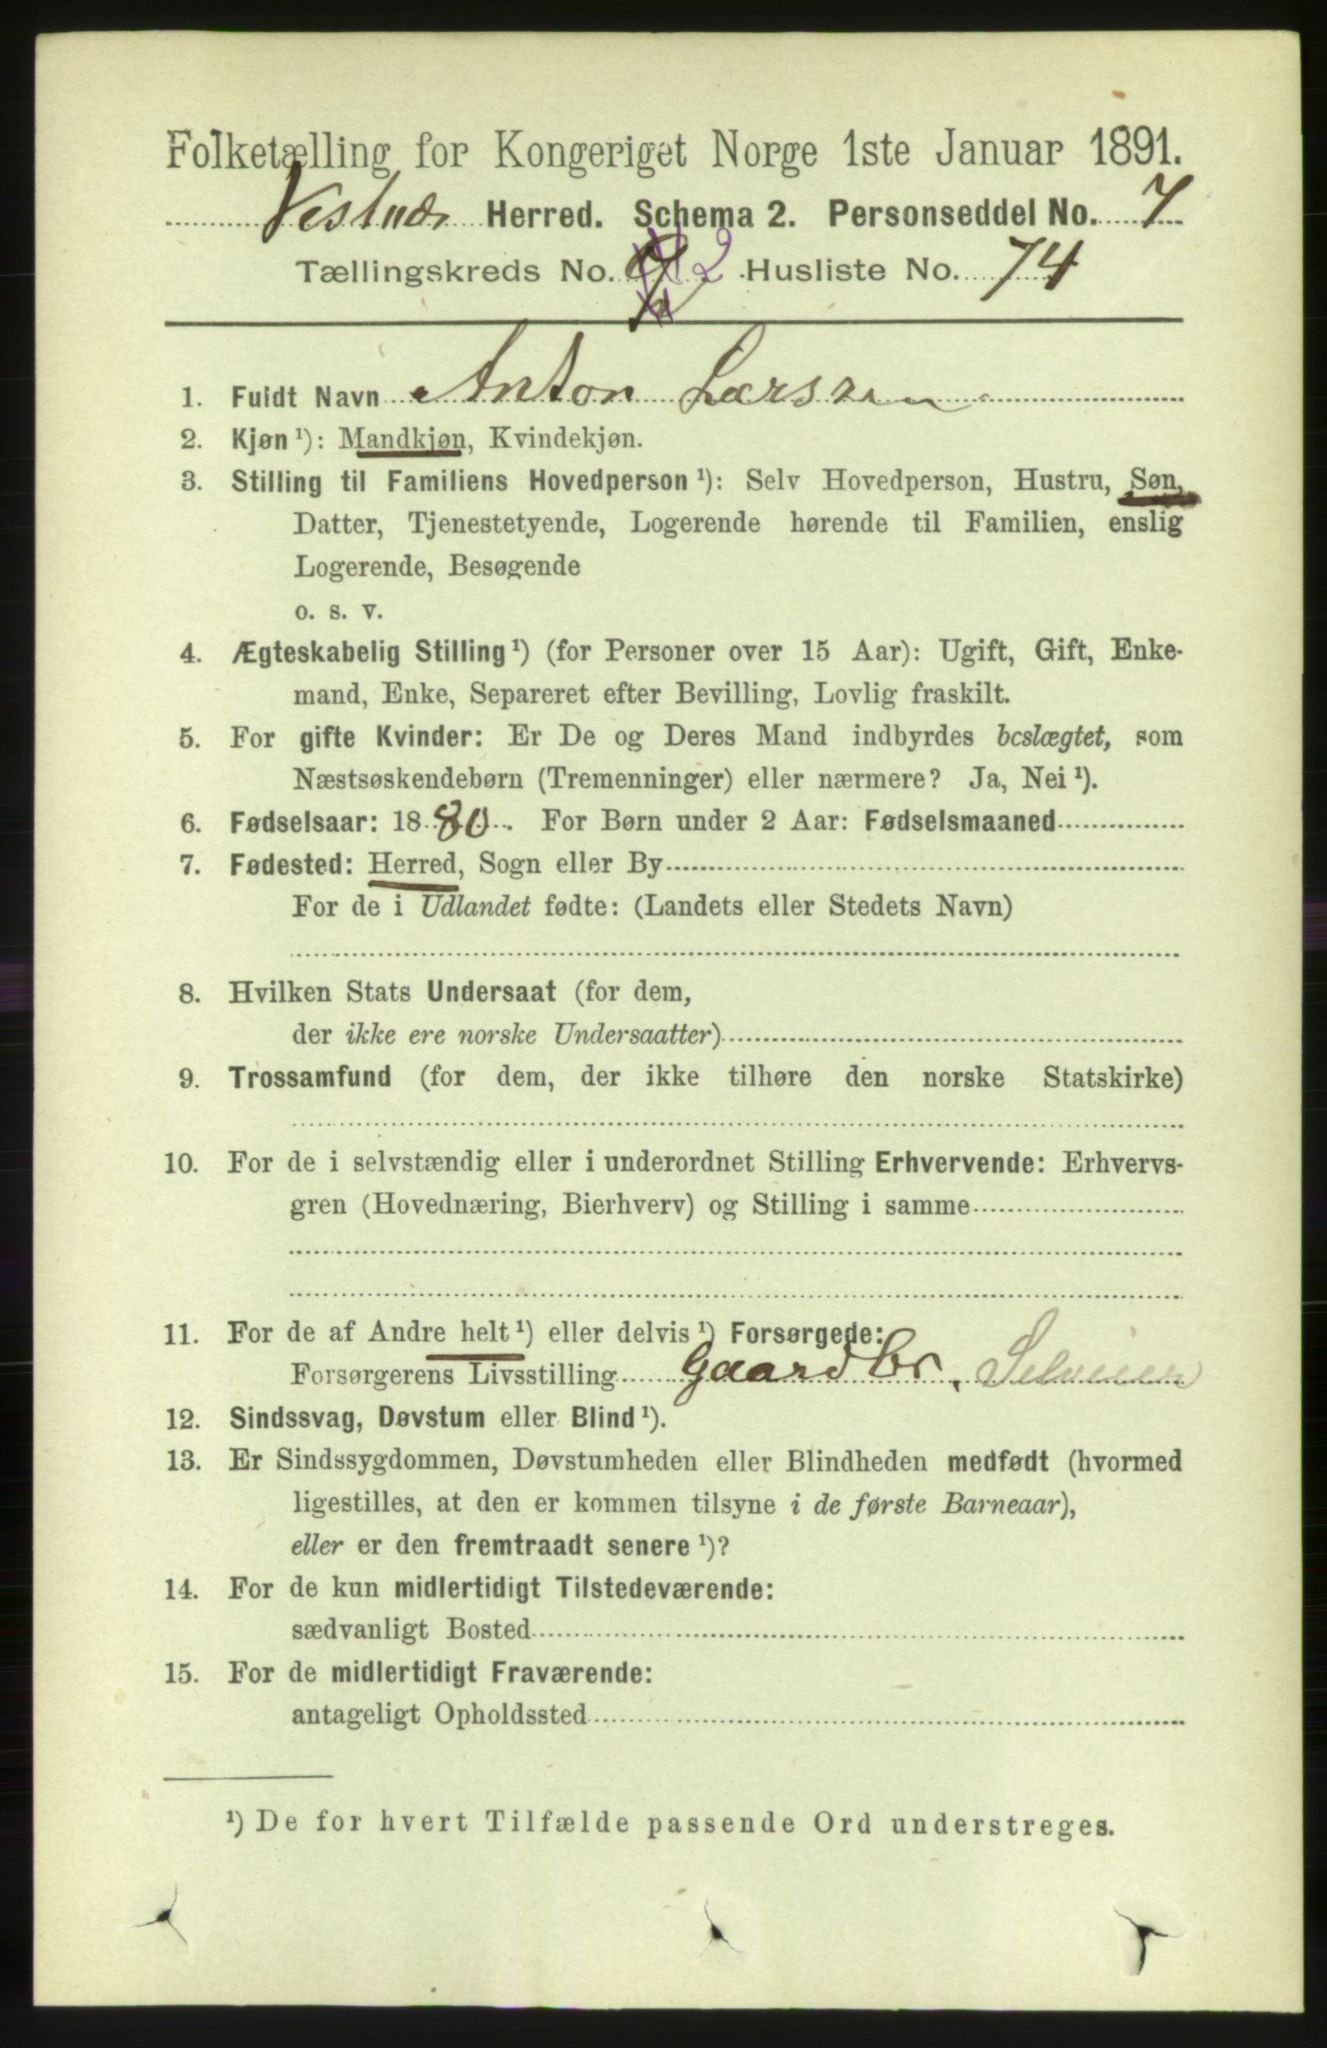 Folketælling for Kongeriget Norge 1ste Januar 1891.
Vestnæs Herred. Schema 2. Personseddel No. 7
Tællingskreds No. 9 2 Husliste No. 74
1. Fuldt Navn Anton Larssen
2. Kjøn ¹): Mandkjøn, Kvindekjøn.
3. Stilling til Familiens Hovedperson ¹): Selv Hovedperson, Hustru, Søn,
Datter, Tjenestetyende, Logerende hørende til Familien, enslig
Logerende, Besøgende
o. s. v.
4. Ægteskabelig Stilling ¹) (for Personer over 15 Aar): Ugift, Gift, Enke-
mand, Enke, Separeret efter Bevilling, Lovlig fraskilt.
5. For gifte Kvinder: Er De og Deres Mand indbyrdes beslægtet, som
Næstsøskendebørn (Tremenninger) eller nærmere? Ja, Nei ¹).
6. Fødselsaar: 1880. For Børn under 2 Aar: Fødselsmaaned
7. Fødested: Herred, Sogn eller By
For de i Udlandet fødte: (Landets eller Stedets Navn)
8. Hvilken Stats Undersaat (for dem,
der ikke ere norske Undersaatter)
9. Trossamfund (for dem, der ikke tilhøre den norske Statskirke)
10. For de i selvstændig eller i underordnet Stilling Erhvervende: Erhvervs-
gren (Hovednæring, Bierhverv) og Stilling i samme
11. For de af Andre helt ¹) eller delvis ¹) Forsørgede:
Forsørgerens Livsstilling Gaardbr. Selveier
12. Sindssvag, Døvstum eller Blind ¹).
13. Er Sindssygdommen, Døvstumheden eller Blindheden medfødt (hvormed
ligestilles, at den er kommen tilsyne i de første Barneaar),
eller er den fremtraadt senere ¹)?
14. For de kun midlertidigt Tilstedeværende:
sædvanligt Bosted
15. For de midlertidigt Fraværende:
antageligt Opholdssted
¹) De for hvert Tilfælde passende Ord understreges.